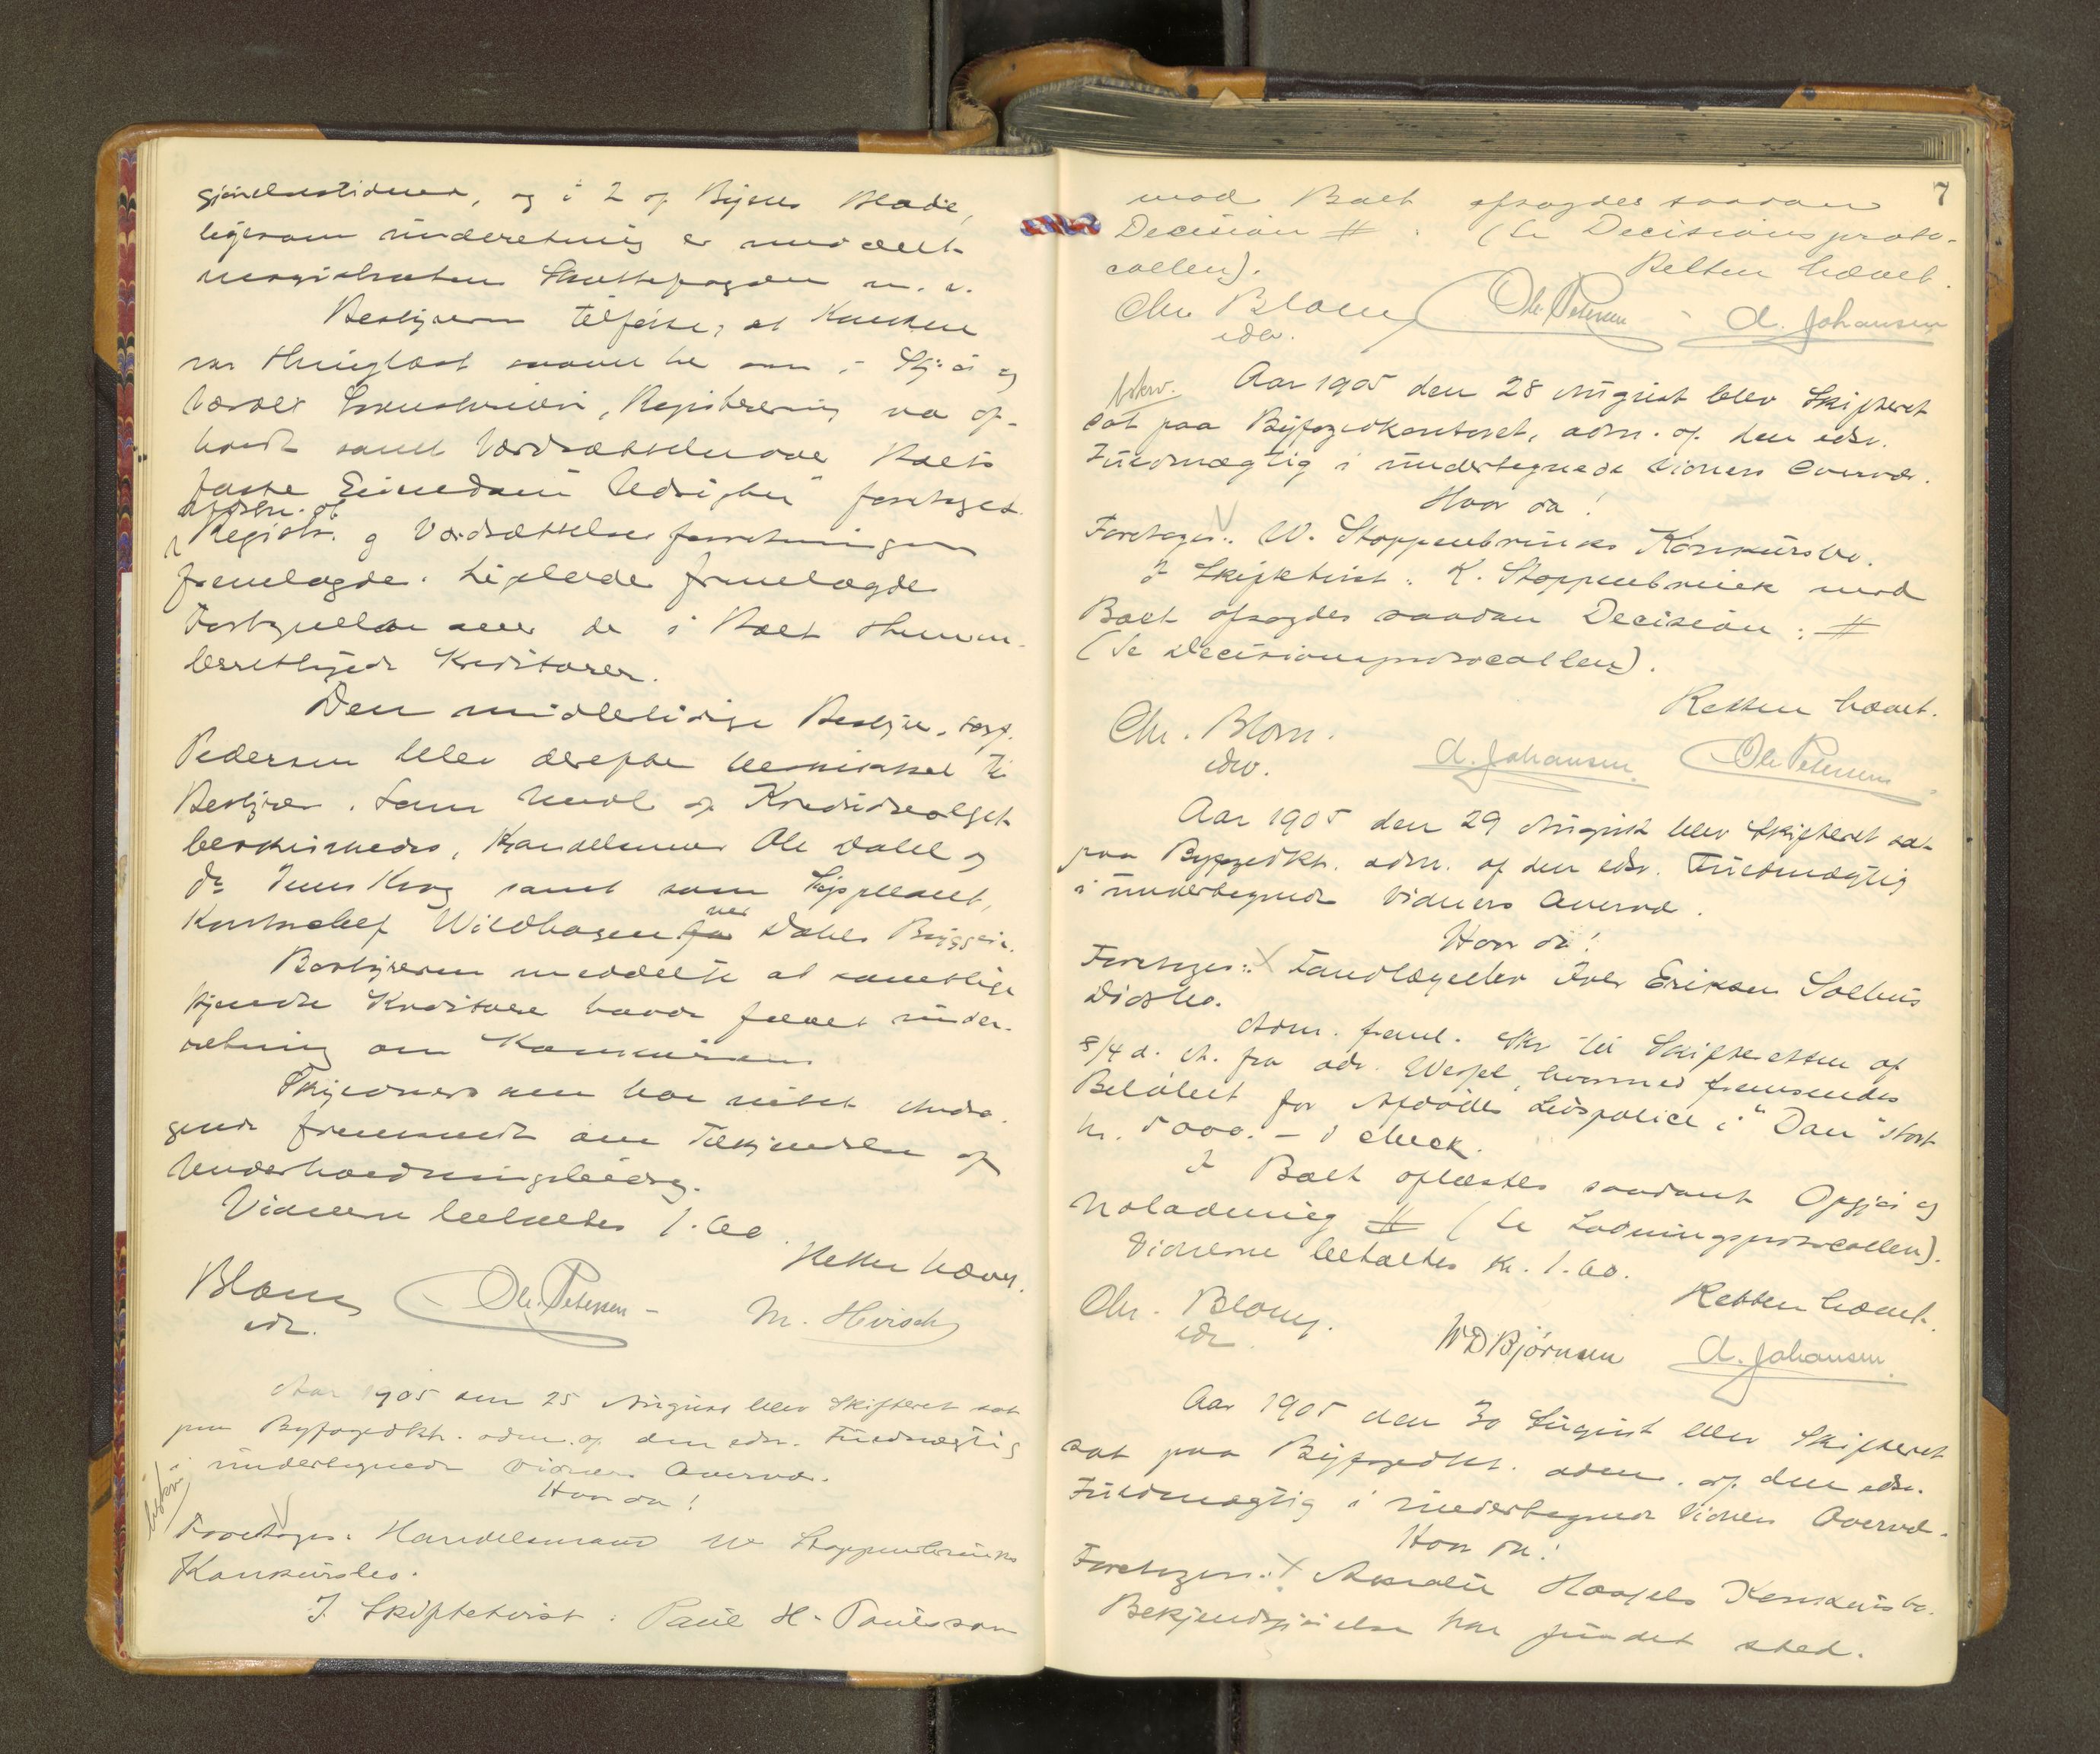 gjørelsestidende, og i 2 af Byens Blade,
ligesom underretning er meddelt
magistraten Skattefogden m. v.
Bestyreren tilføiet, at Konkursen
var thinglæst
Registrering var op-
samt Værdsættelse over Boets
faste Eiendom foretaget
Udskr. af
Registr. og Værdsættelsesforretningen
fremlagdes. Ligeledes fremlagdes
Fortegnelse over de i Boet stemme-
berettigede Kreditorer.
Den midlertidige Bestyrer, sagf.
Pedersen blev derefter beskikket til
Bestyrer. Som Medl. af Kreditudvalget
beskikkedes, Handelsmand Ole Dahl og
do Jens Krog samt som Suppleant,
Kontorchef Wildhagen ved Dahls Bryggeri.
Bestyreren meddelte at samtlige
kjendte Kreditorer havde faaet under-
retning om Konkursen.
Skyldneren har intet Andra-
gende fremsendt om Tilkjendelse af
Underholdningsbidrag.
Vidnerne betaltes 1.60.
Retten hævet.
Blom
edv.
Ole Petersen - M. Hirsch
Aar 1905 den 25 August blev Skifteret sat
paa Byfogedkt. adm. af den edsv. Fuldmægtig
i undertegnede Vidners Overvær.
Hvor da!
Foretoges: Handelsmand W Stoppenbrinks
Konkursbo.
I Skiftetvist: Paul H. Paulsson
7
mod Boet afsagdes saadan
Decision # : (Se Decisionsproto-
collen).
Retten hævet.
Chr. Blom
edv.
Ole Petersen - A. Johansen
Aar 1905 den 28 August blev Skifteret
sat paa Byfogedkontoret, adm. af den edsv.
Fuldmægtig i undertegnede Vidners Overvær.
Hvor da!
Foretoges: W. Stoppenbrinks Konkursbo.
I Skiftetvist: K. Stoppenbrink mod
Boet afsagdes saadan Decision : #
(Se Decisionsprotocollen).
Retten hævet.
Chr. Blom.
edv.
A. Johansen. Ole Petersen
Aar 1905 den 29 August blev Skifteret sat
paa Byfogedkt. adm. af den edsv. Fuldmægtig
i undertegnede Vidners Overvær.
Hvor da!
Foretoges: Tandlægeelev Iver Eriksen Solhus
Dødsbo.
Adm. freml. Skr til Skifteretten af
8/4 d. A. fra adv. Wessel, hvormed fremsendes
Beløbet for Afdødes Livspolice i "Dan" stort
kr. 5000.- i check.
I Boet oplæstes saadant Opgjør og
Udlodning # (Se Lodningsprotocollen).
Vidnerne betaltes Kr. 1.60.
Retten hævet.
Chr. Blom.
edv
WDBjørnsen A. Johansen
Aar 1905 den 30 August blev Skifteret
sat paa Byfogedkt. adm. af den edsv.
Fuldmægtig i undertegnede Vidners Overvær.
Hvor da!
Foretoges: Konkursbo.
Bekjendtgjørelse har fundet sted.